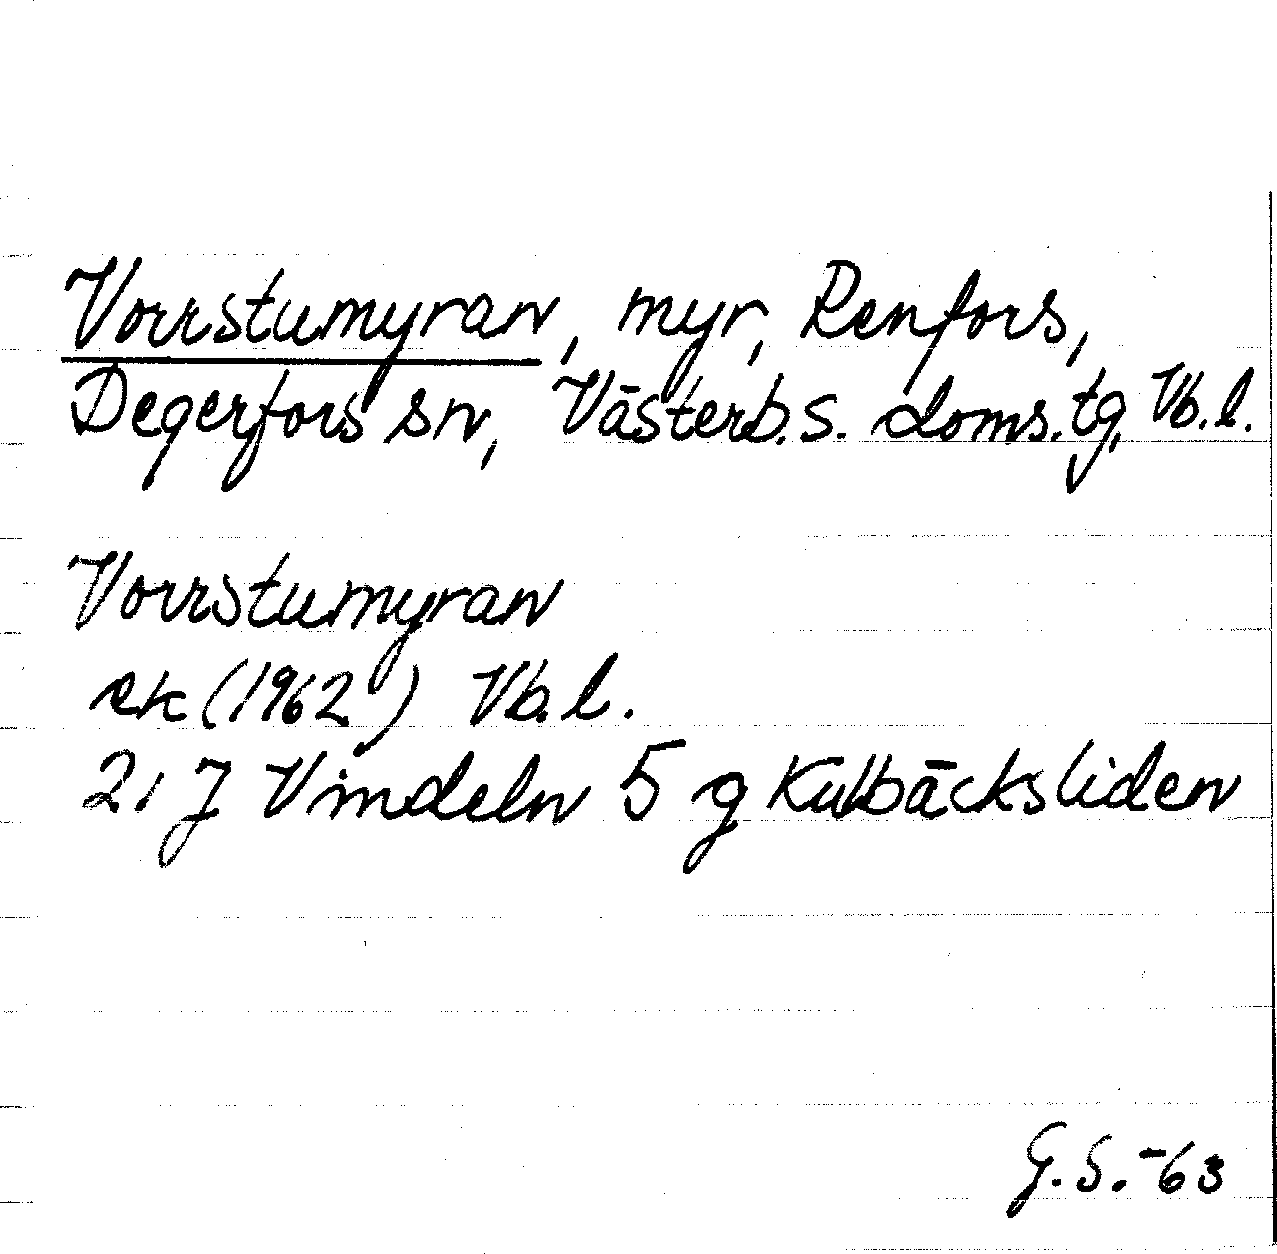 Vorrstumyran, myr, Renfors,
Degerfors sn, Västerb. s. doms. tg, Vb. l.
Vorrstumyran
ek (1962) Vb. l.
21 J Vindeln 5 g Kulbäcksliden
G. S. -63